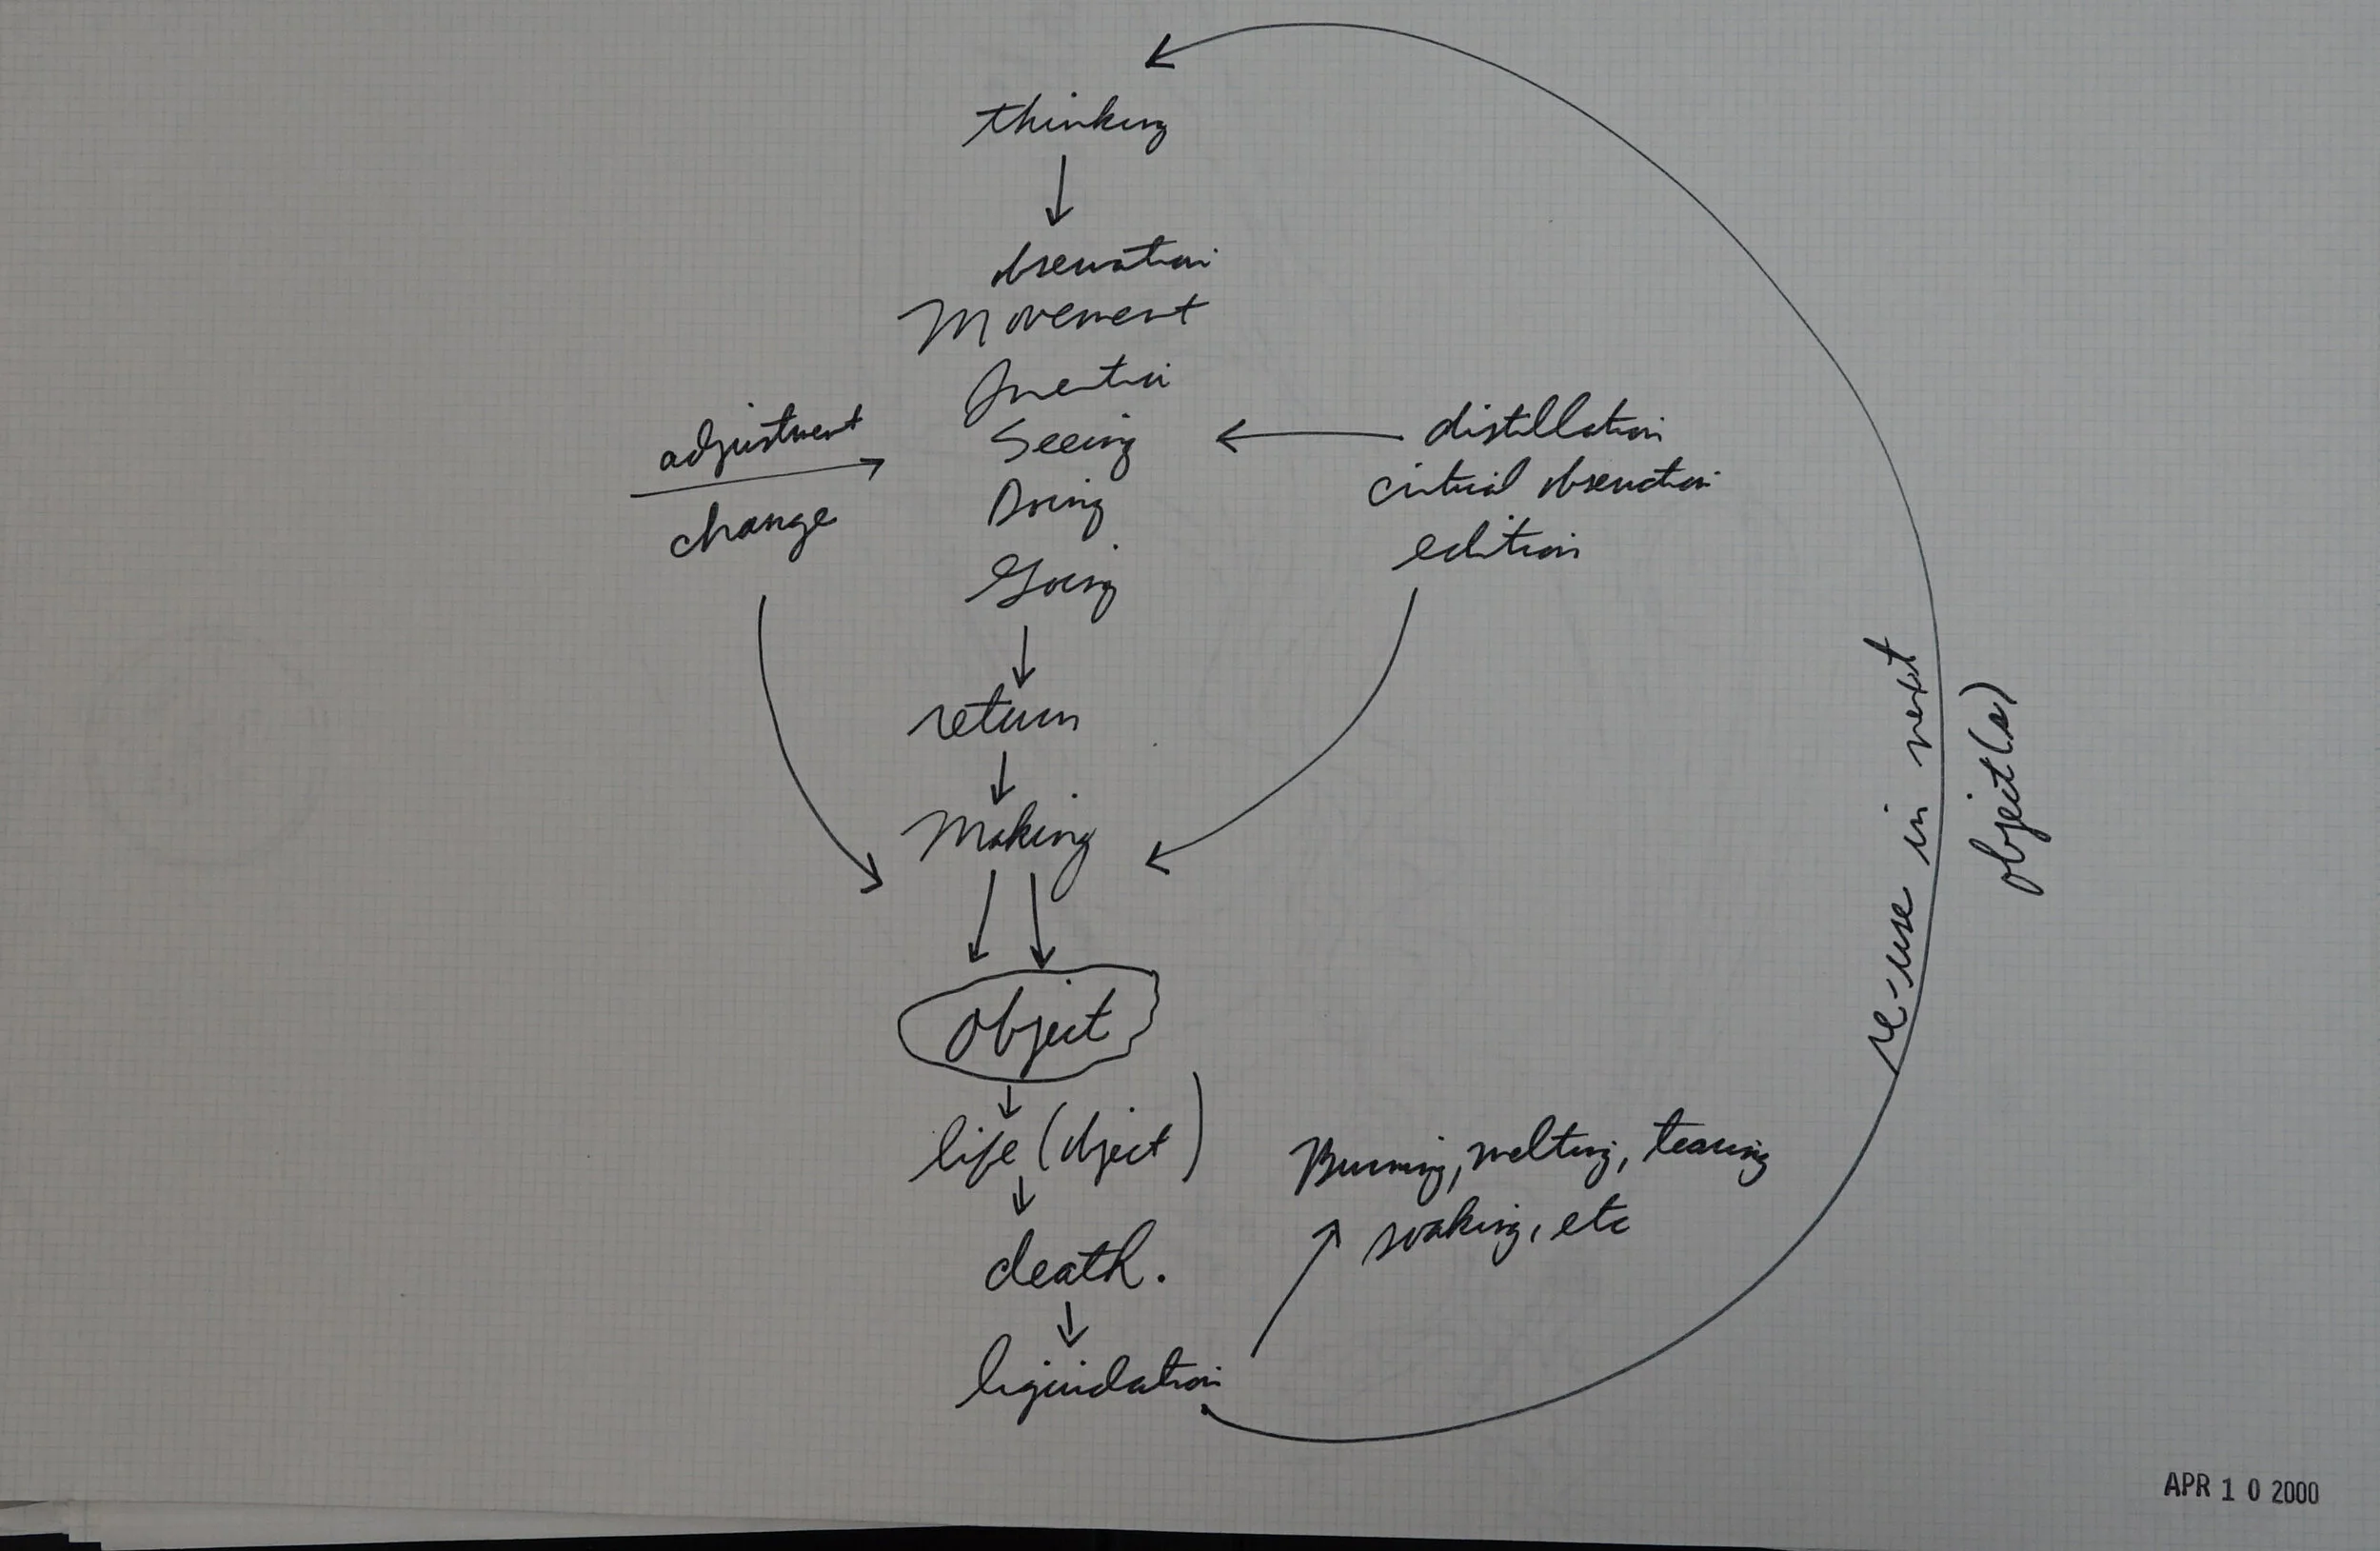 thinking
observation
Movement
Inertia
Seeing
Doing
Going
adjustment
change
distillation
critical observation
edition
return
Making
object
life (object)
death.
liquidation
Burning, melting, tearing
soaking, etc
re-use in next
object(s)
APR 10 2000